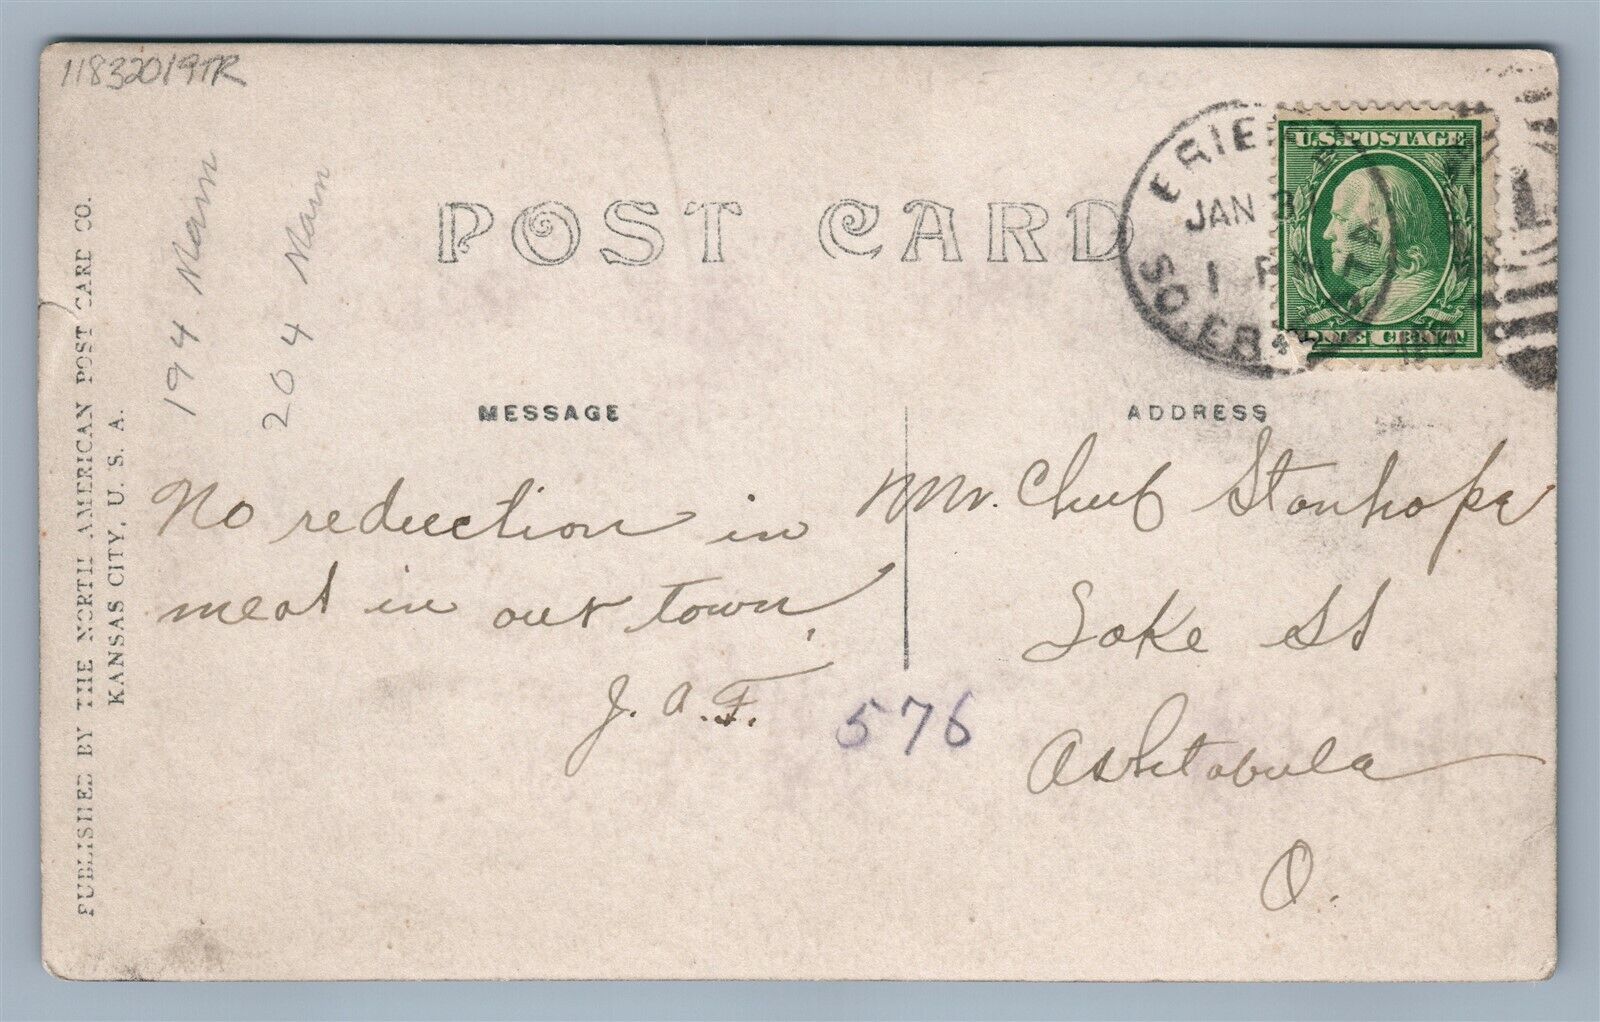 11832019TR
194 Main
204 Main
PUBLISHED BY THE NORTH AMERICAN POST CARD CO.
KANSAS CITY, U. S. A.
POST CARD
ERIE
JAN 3
1 P
SO. ERIE
U.S. POSTAGE
ONE CENT
MESSAGE
ADDRESS
No reduction in
meat in our town,
J. A. F.
576
Mr. Chub Stanhope
Lake St
Ashtabula
O.